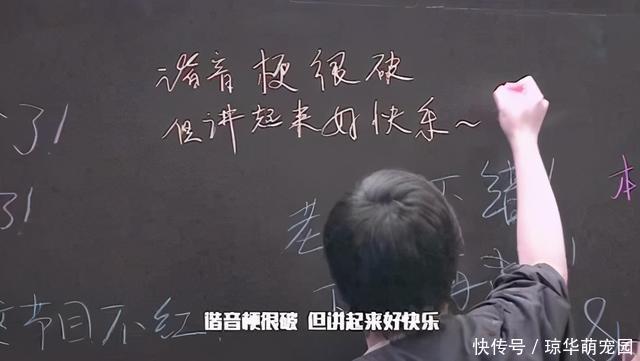 谐音梗很破
但讲起来好快乐~
了!
不错!
本
3!
老
节目不红
&
谐音梗很破 但讲起来好快乐
快传号/琼华萌宠园